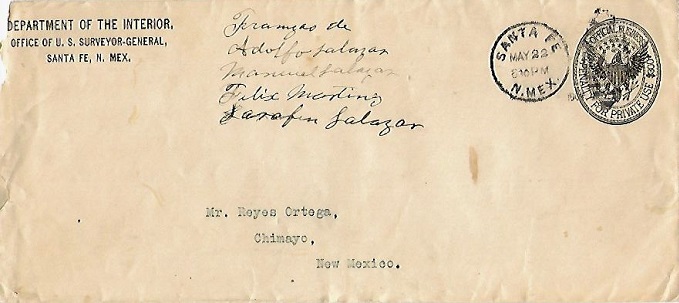 DEPARTMENT OF THE INTERIOR,
OFFICE OF U. S. SURVEYOR-GENERAL,
SANTA FE, N. MEX.
de
Adolfo Salazar
Manuel Salazar
Felix Martinz
Sarafin Salazar
SANTA FE
MAY 22
N. MEX.
PENALTY FOR PRIVATE USE $300
Mr. Reyes Ortega,
Chimayo,
New Mexico.